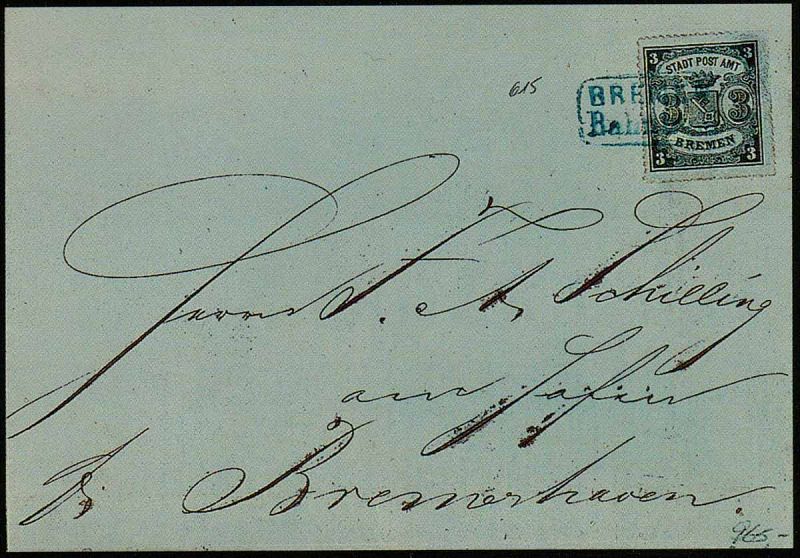 3 3
STADT POST AMT
3 3
BREMEN
3 3
BRE
Bah
615
Herrn F. A. Schilling
am Hafen
Bremerhaven.
965-